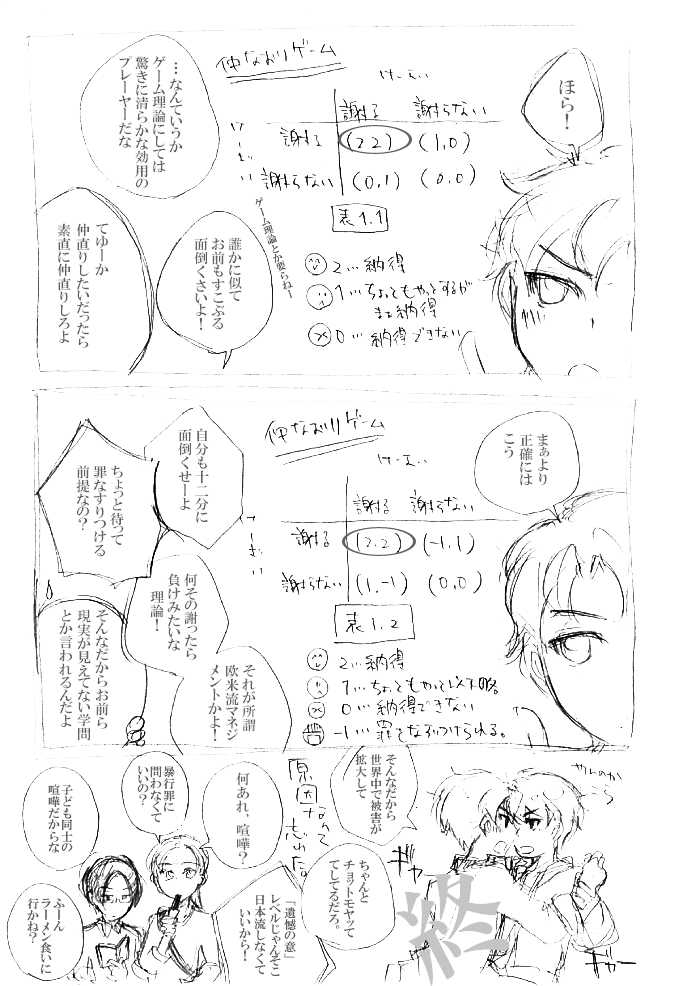 ほら！
仲なおりゲーム
けーえい
謝る 謝らない
けーざい
謝る (2 2) (1,0)
謝らない (0,1) (0,0)
表1.1
2…納得
1…ちょっともやっとするが
まあ納得
0…納得できない
…なんていうか
ゲーム理論にしては
驚きに清らかな効用の
プレーヤーだな
ゲーム理論とか要らねー
誰かに似て
お前もすこぶる
面倒くさいよ！
てゆーか
仲直りしたいだったら
素直に仲直りしろよ
まぁより
正確には
こう
仲なおりゲーム
けーえい
謝る 謝らない
けーざい
謝る (2.2) (-1.1)
謝らない (1,-1) (0.0)
表1.2
2…納得
1…ちょっともやっと以下略
0…納得できない
-1…罪をなすりつけられる。
自分も十二分に
面倒くせーよ
ちょっと待って
罪なすりつける
前提なの？
何その謝ったら
負けみたいな
理論！
それが所謂
欧米流マネジ
メントかよ！
そんなだからお前ら
現実が見えてない学問
とか言われるんだよ
やんのか
こら
そんなだから
世界中で被害が
拡大して
ちゃんと
チョットモヤッて
てしてるだろ。
ギャー
ギャー
原因なんて
忘れた。
「遺憾の意」
レベルじゃんそこ
日本流しなくて
いいから！
何あれ、喧嘩？
暴行罪に
問わなくて
いいの？
子ども同士の
喧嘩だからな
ふーん
ラーメン食いに
行かね？
終